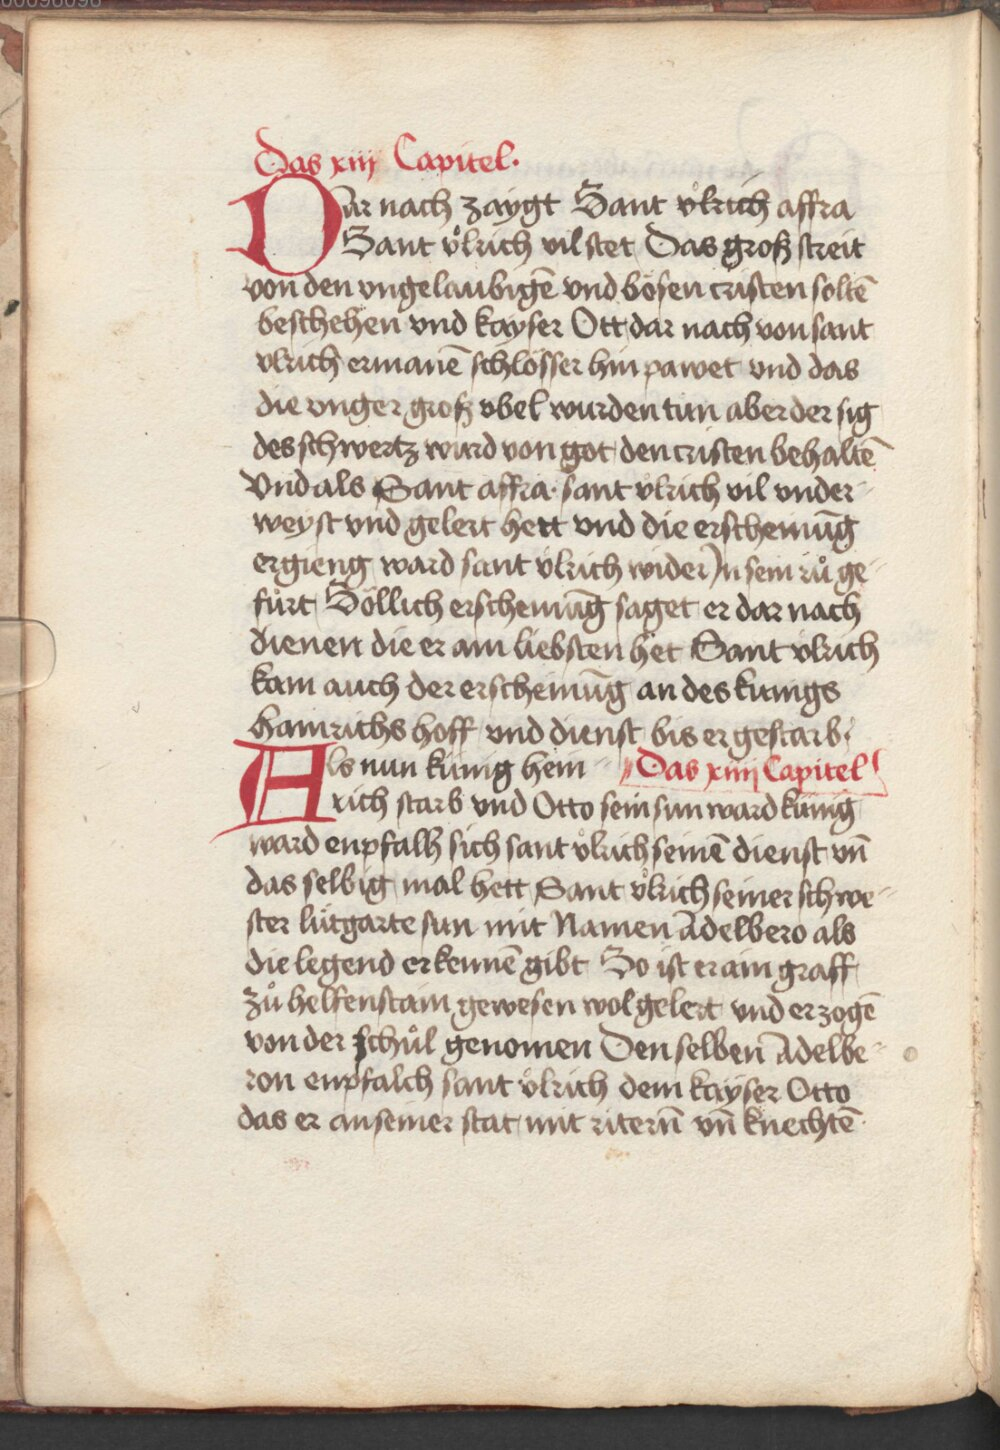 Das xiij Capitel.
Dar nach zaygt Sant vͦlrich affra
Sant vͦlrich vil stet Das groß streit
von den vngelaubigē vnd bösen cristen soltē
beschehen vnd kayser Ott dar nach von sant
vlrich ermanē schlösser hin pawet vnd das
die vnger groß vbel wurden tun aber der sig
des schwertz wurd von got den cristen behaltē
Vnd als Sant affra. sant vͦlrich vil vnder
weyst vnd gelert hett vnd die erscheinūg
ergieng ward sant vͦlrich wider In sein rüͦ ge
fürt Söllich erscheinūg saget er dar nach
dienen die er am liebsten het Sant vlrich
kam auch der erscheinūg an des kunigs
hainrichs hoff vnd dienst bis er gestarb.
Als nun künig hein Das xiiij Capitel
rich starb vnd Otto sein sun ward künig
ward enpfalh sich sant vͦlrich seinē dienst vn̄
das selbig mal hett Sant vͦlrich seiner schwe
ster lütgarte sun mit Namen Adelbero als
die legend erkennē gibt So ist er ain graff
zuͦ helfenstain gewesen wol gelert vnd erzogē
von der schuͦl genomen Den selben Adelbe
ron enpfalch sant vͦlrich dem kayser Otto
das er an seiner stat mit ritern̄ vn̄ knechtē